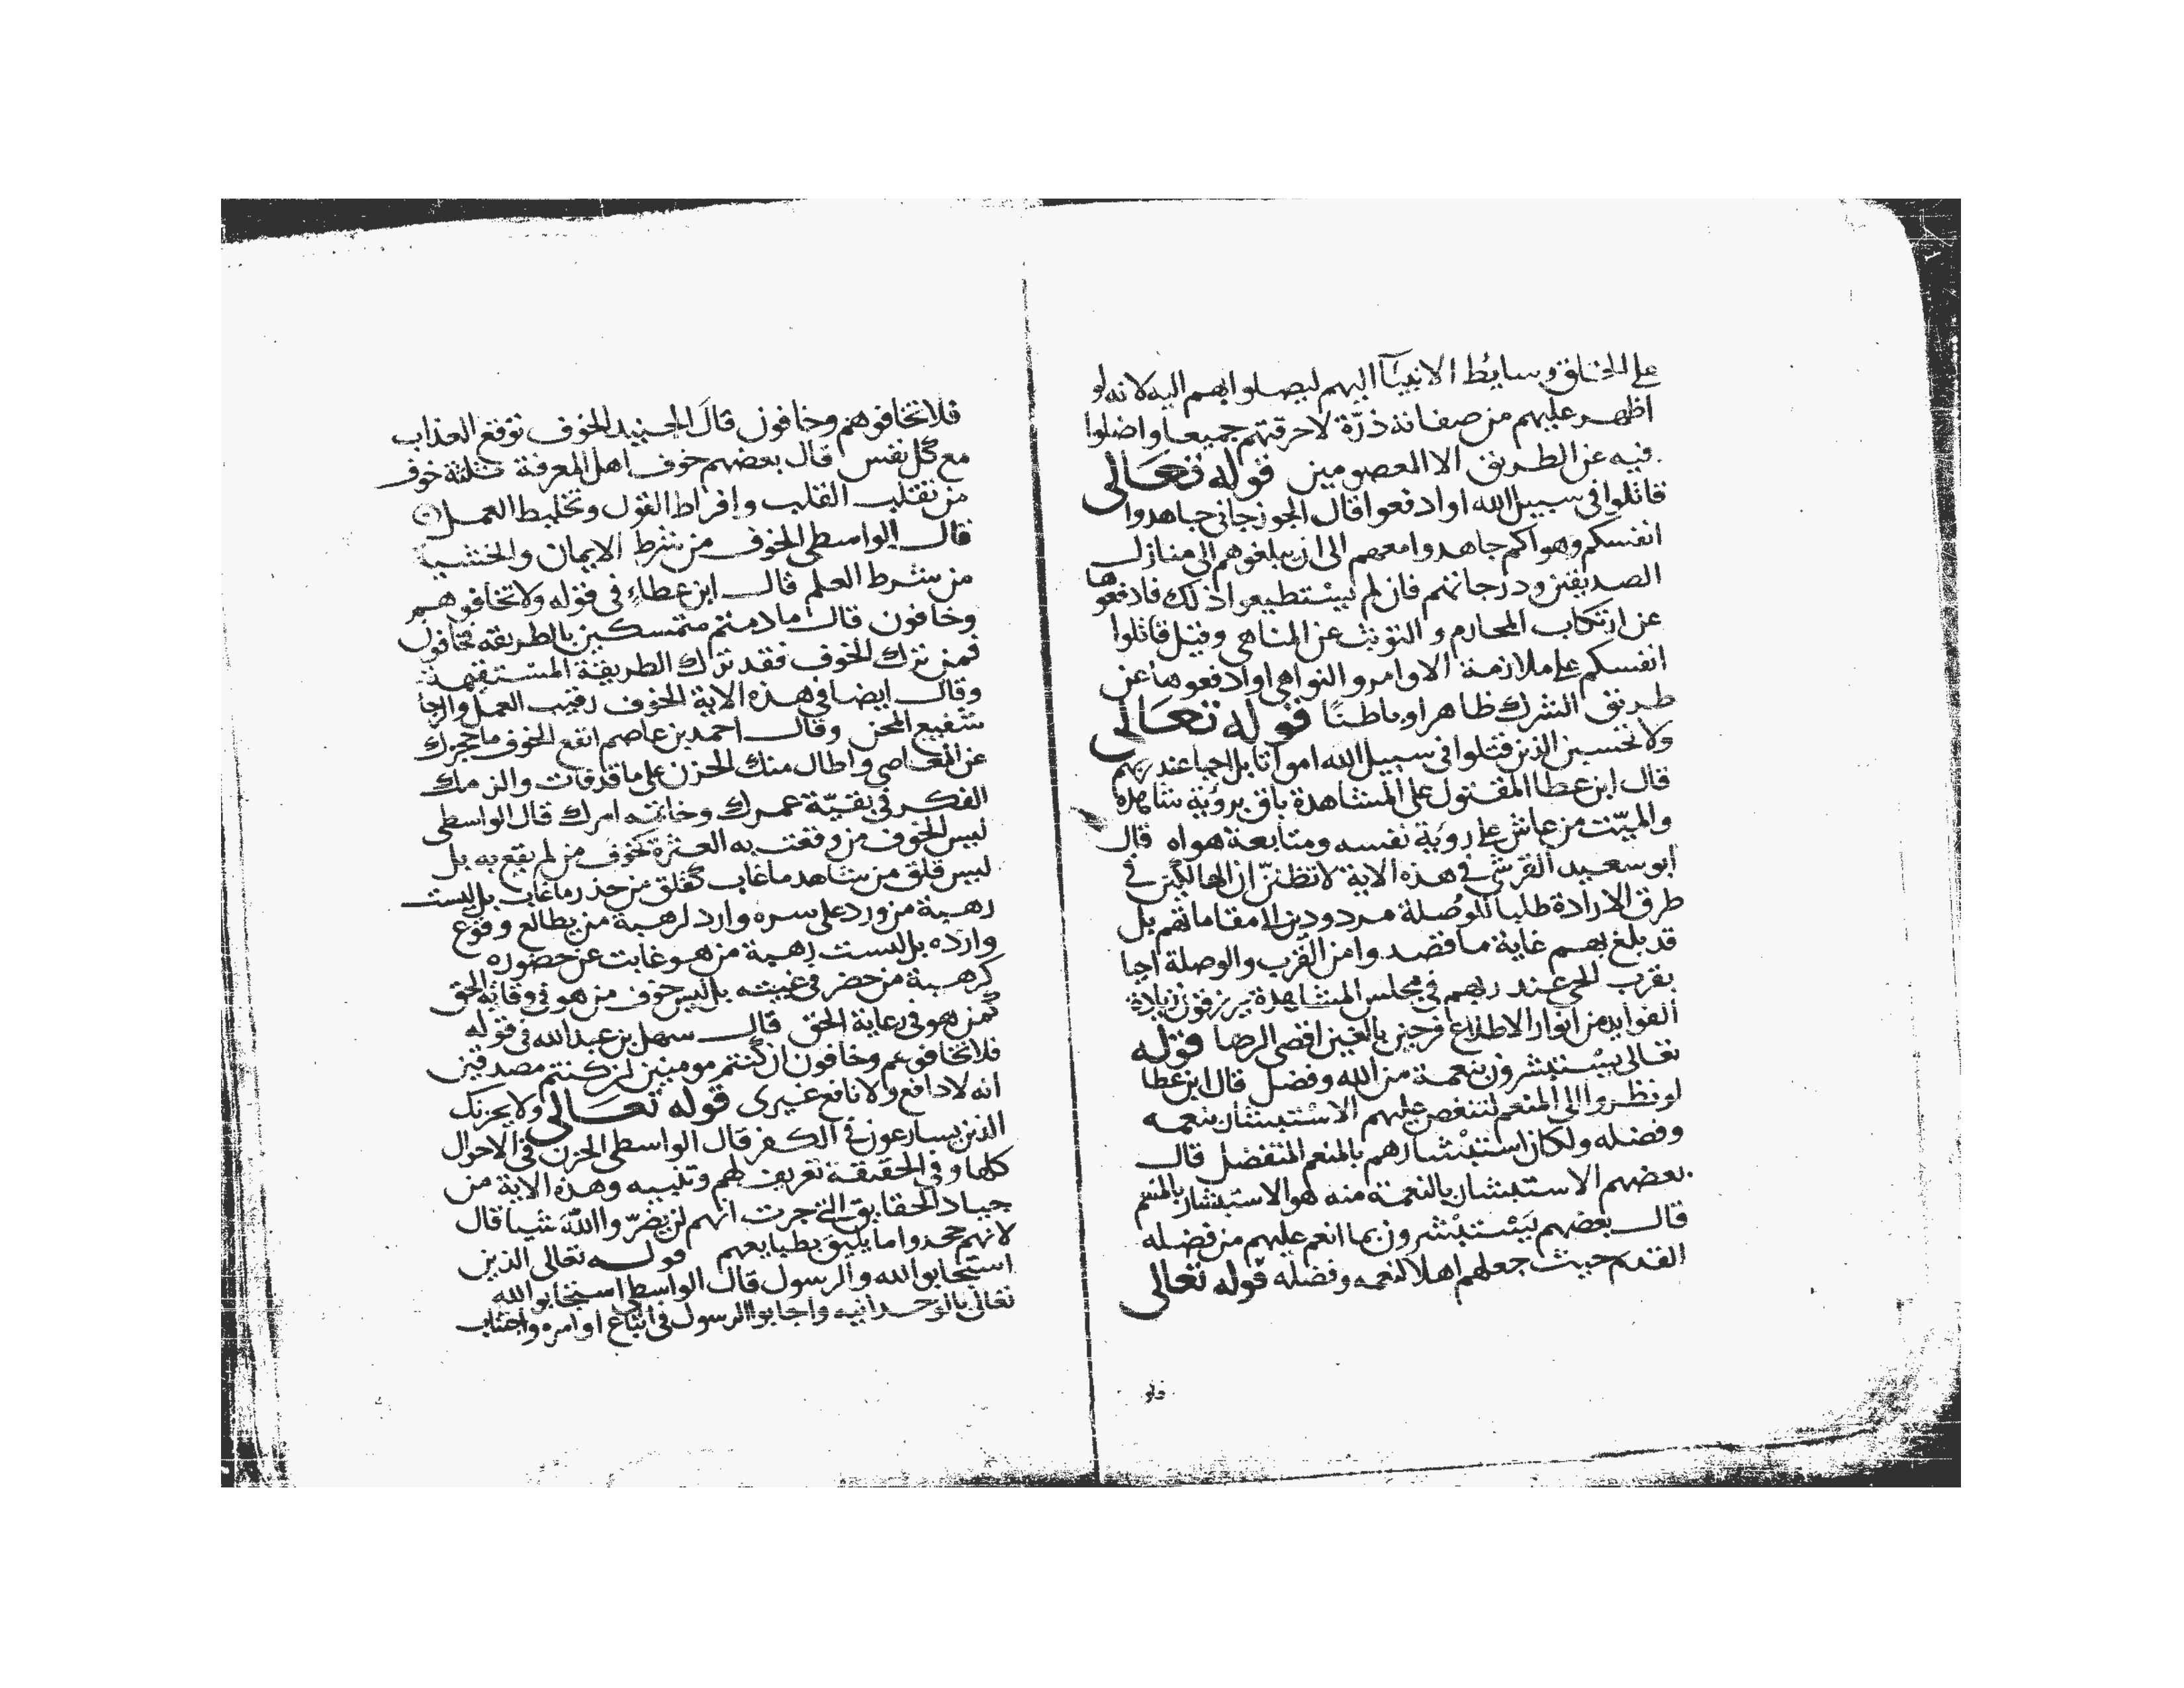 على الخلق وسايط الانبيآ اليهم ليصلوا بهم اليه لانه لو
اظهر عليهم من صفاته ذرّة لاحرقتهم جميعا واضلوا
فيه عن الطريق الا المعصومين قوله تعالى
قاتلوا في سبيل الله او ادفعوا قال الجوزجاني جاهدوا
انفسكم وهواكم جاهدوا معهم الى ان يبلغوهم الى منازل
الصديقين ودرجاتهم فان لم يستطيعوا ذلك فادفعوها
عن ارتكاب المحارم و التوثب عن المناهي وقيل قاتلوا
انفسكم على ملازمة الاوامر والنواهي او ادفعوها عن
طريق الشرك ظاهرا وباطنا قوله تعالى
ولا تحسبن الذين قتلوا في سبيل الله امواتا بل احيا عند ربهم
قال ابن عطا المقتول على المشاهدة باق بروية شاهده
والميّت من عاش على روية نفسه ومتابعة هواه قال
ابو سعيد القرشي في هذه الاية لا تظنّن ان الهالكين في
طرق الارادة طلبا للوصلة مردودين الى مقاماتهم بل
قد بلغ بهم غاية ما قصدوا من القرب والوصلة احيا
بقرب الحي عند ربهم في مجلس المشاهدة يرزقون زيادة
الفوايد من انوار الاطلاع فرحين بالغين اقصى الرضا قوله
تعالى يستبشرون بنعمة من الله وفضل قال ابن عطا
لو نظروا الى المنعم لتنغص عليهم الاستبشار بنعمه
وفضله ولكان استبشارهم بالمنعم المتفضل قال
بعضهم الاستبشار بالنعمة منه هو الاستبشار بالمنعم
قال بعضهم يستبشرون بما انعم عليهم من فضله
القديم حيث جعلهم اهلا لنعمه وفضله قوله تعالى
فلا
فلا تخافوهم وخافون قال الجنيد الخوف توقع العذاب
مع كل نفس قال بعضهم خوف اهل المعرفة ثلثة خوف
من تقلب القلب وافراط القول وتخليط العمل
قال الواسطي الخوف من شرط الايمان والخشية
من شرط العلم قال ابن عطاء في قوله ولا تخافوهم
وخافون قال ما دمتم متمسكين بالطريقه تخافون
فمن ترك الخوف فقد ترك الطريقة المستقيمة
وقال ايضا في هذه الاية الخوف رقيب العمل والرجا
شفيع المحن وقال احمد بن عاصم انفع الخوف ما حجزك
عن المعاصي واطال منك الحزن على ما قد فات والزمك
الفكر في بقيّة عمرك وخاتمه امرك قال الواسطي
ليس الخوف من وقعت به العثرة كخوف من لم يقع به بل
ليس قلق من شاهد ما غاب كقلق من حذر ما غاب بل ليست
رهبة من ورد على سره وارد لرهبة من يطالع وقوع
وارده بل ليست رهبة من هو غايب عن حضوره
كرهبة من حضر في غيبته بل ليس خوف من هو في وقاية الحق
كمن هو في رعاية الحق قال سهل بن عبد الله في قوله
فلا تخافوهم وخافون ان كنتم مومنين ان كنتم مصدقين
انه لا دافع ولا نافع غيرى قوله تعالى ولا يحزنك
الذين يسارعون في الكفر قال الواسطي الحزن في الاحوال
كلها و في الحقيقة تعريف لهم وتنبيه وهذه الاية من
جياد الحقايق التي جرت انهم لن يضرّوا الله شيا قال
لانهم جحدوا ما يليق بطبايعهم قوله تعالى الذين
استجابوا لله والرسول قال الواسطي استجابوا لله
تعالى بالوحدانيه واجابوا الرسول في اتباع اوامره واجتناب